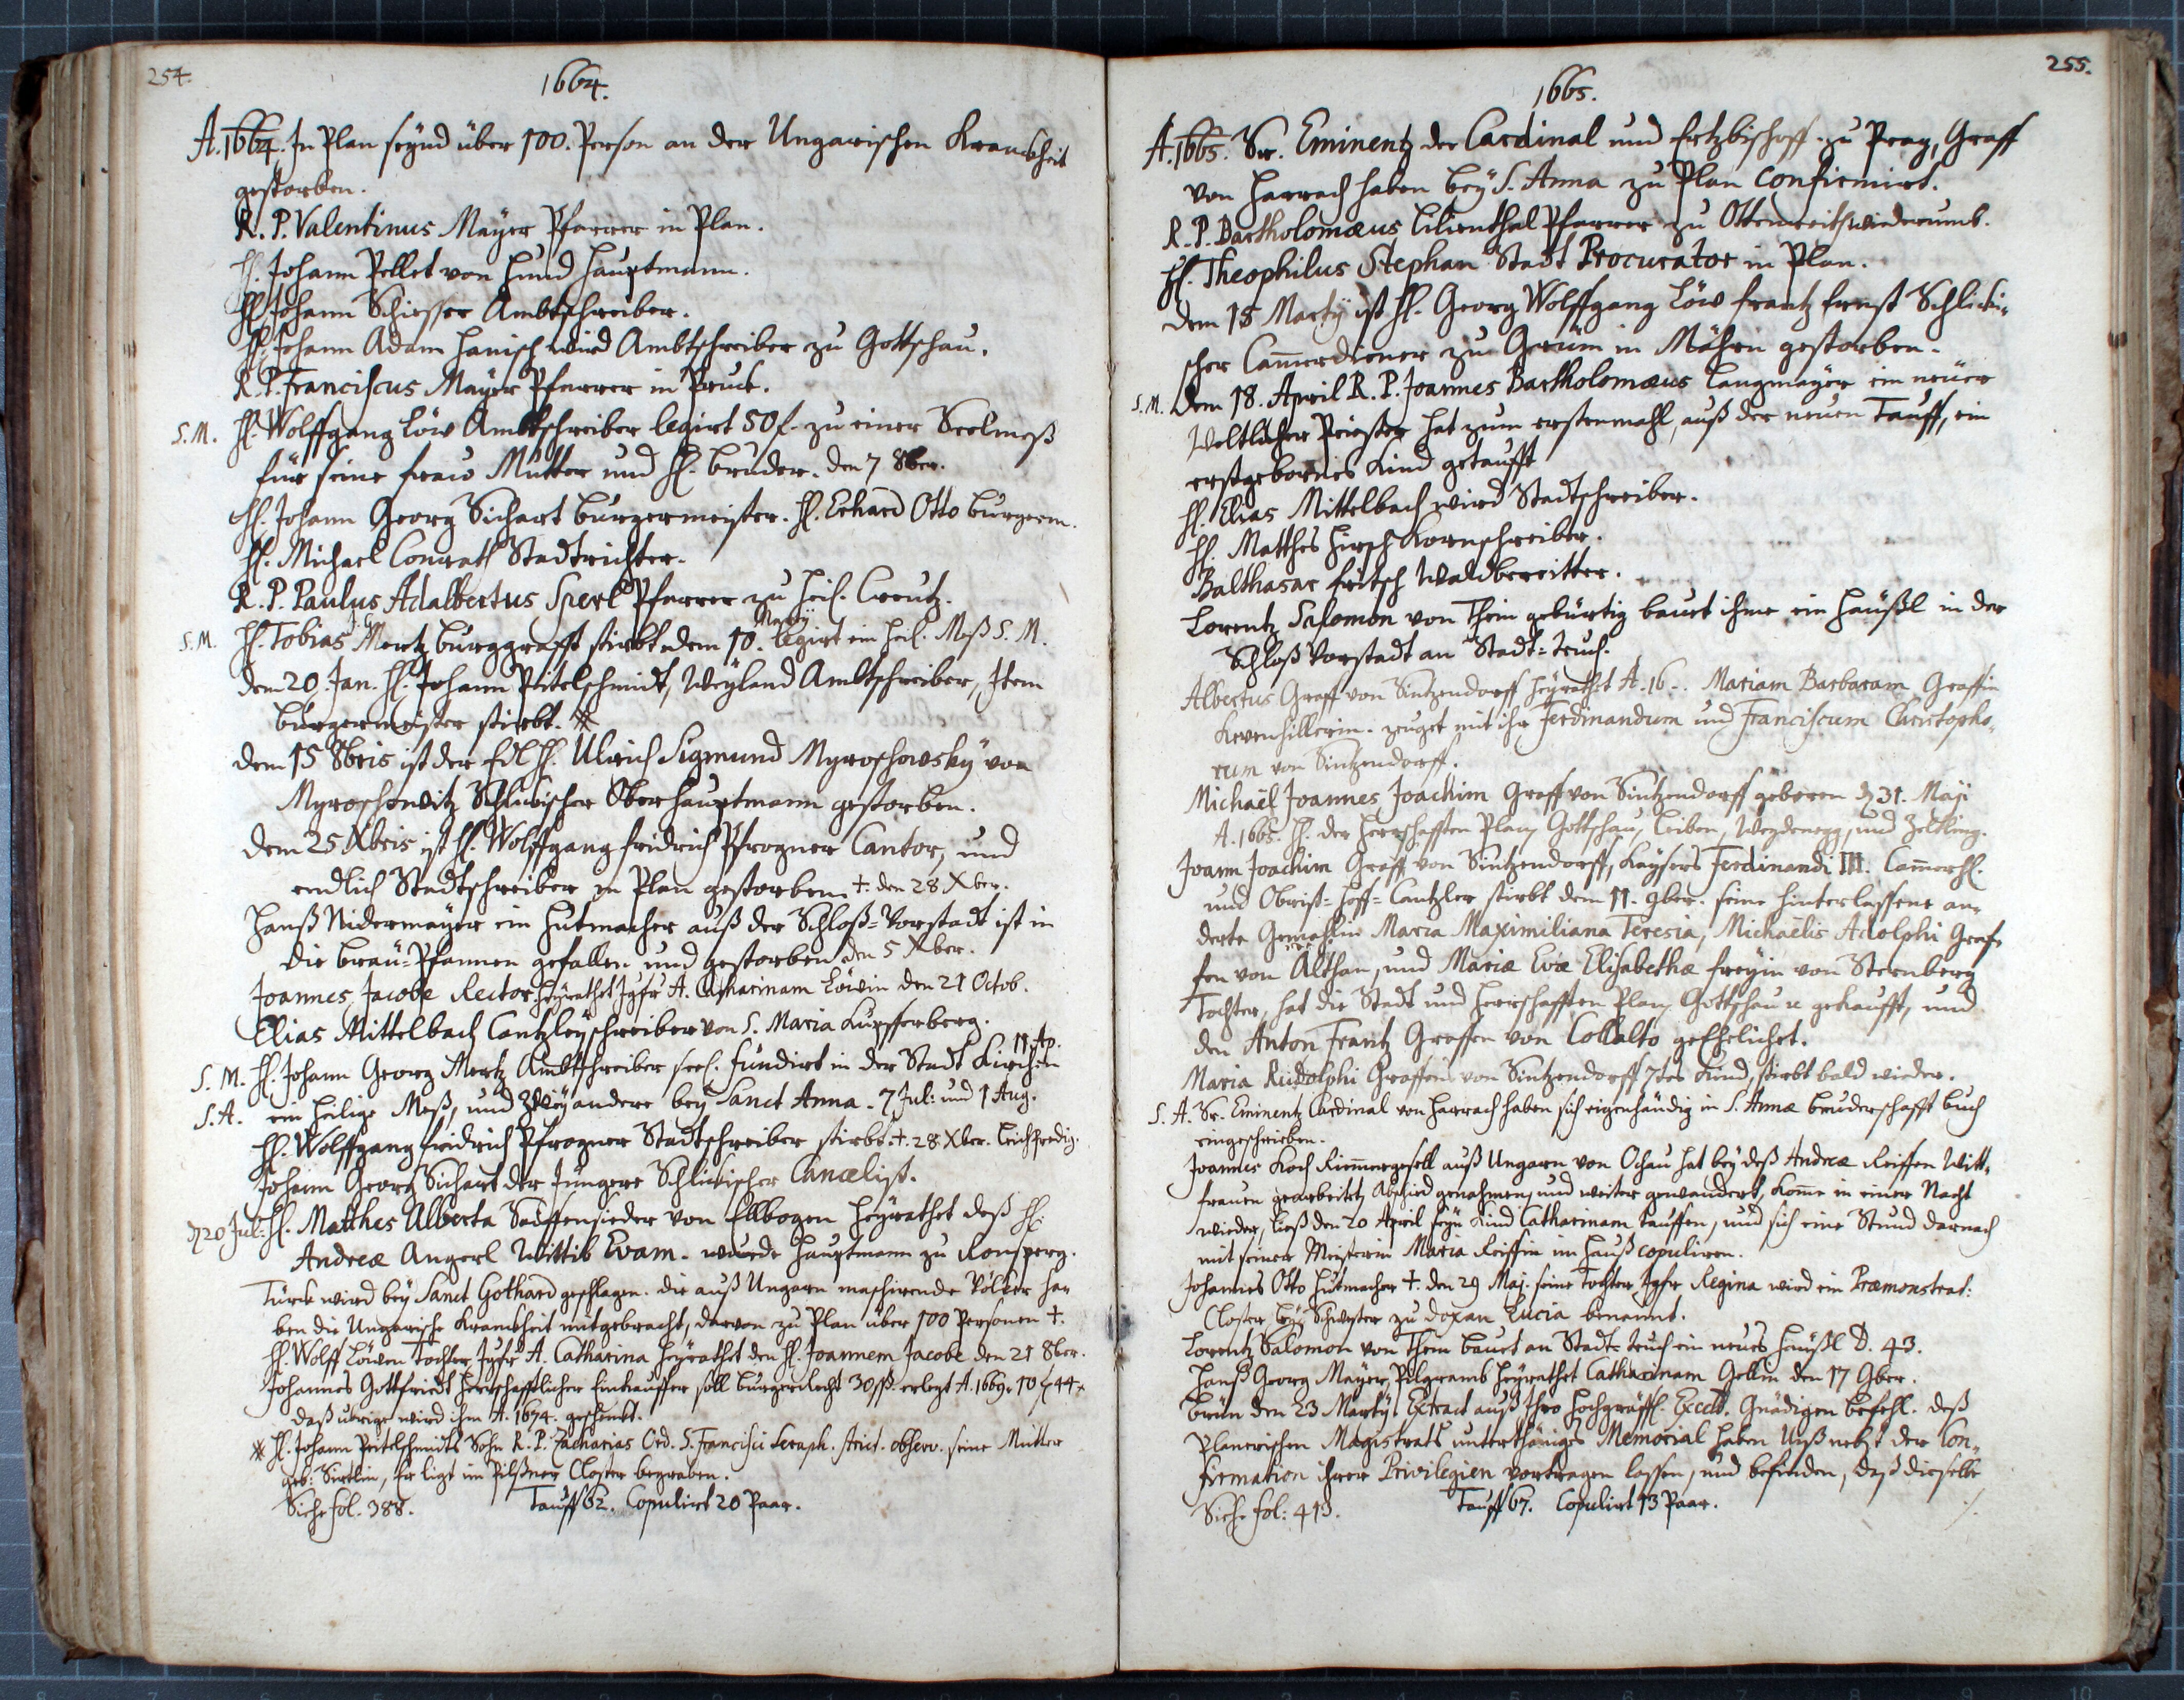 254.
1664.
A. 1664. In Plan seynd über 100. Person an der Ungarischen Kranckheit
gestorben.
R. P. Valentinus Mayer Pfarrer in Plan.
H. Johann Pellet von Hund Hauptmann.
H. Johann Schiesser Ambtschreiber.
H. Johann Adam Hanisch wird Ambtschreiber zu Gottschau.
R. P. Franciscus Mayer Pfarrer in Bruck.
S. M. H. Wolffgang Löw Ambtschreiber legirt 50 f. zu einer Seelmeß
für seine Frau Mutter und H. Bruder. den 7 8ber.
H. Johann Georg Sichart Burgermeister. H. Erhard Otto Burgerm.
H. Michael Conrath Stadtrichter.
R. P. Paulus Adalbertus Sperl Pfarrer zu Heil. Creutz.
S. M. H. Tobias Mertz Burggrafft stirbt dem 10. Martÿ legirt ein Heil. Meß S. M.
dem 20. Jan. H. Johann Pitelschmidt, Weyland Ambtschreiber, Item
Burgermeister stirbt. *
dem 15 8bris ist der Edl H. Ulrich Sigmund Myroschowskÿ von
Myroschowitz Schlickischer Oberhauptmann gestorben.
dem 25 Xbris ist H. Wolffgang Fridrich Pfrogner Cantor, und
endlich Stadtschreiber in Plan gestorben. +. den 28 Xber.
Hanß Nidermayer ein Hutmacher auß der Schloß=Vorstadt ist in
die Bräu=Pfannen gefallen und gestorben den 5 Xber.
Joannes Jacobe Rector. Heyrathet Jgfr A. Catharinam Löwin den 21 Octob.
Elias Mittelbach Cantzleyschreiber von S. Maria Kupfferberg.
11. Ap.
S. M. H. Johann Georg Mertz Ambtschreiber seel. fundirt in der Stadt Kirchen
S. A. ein heilige Meß, und zweÿ andere beÿ Sanct Anna. 7 Jul: und 1 Aug.
H. Wolffgang Fridrich Pfrogner Stadtschreiber stirbt. +. 28 Xber. Leichpredig.
Johann Georg Sichart der Jüngere Schlickischer Cancelist.
d 20 Jul: H. Matthes Alberta Saiffensieder von Ellbogen Heyrathet deß H.
Andreæ Angerl Wittib Evam. wurde Hauptmann zu Ronsperg.
Türck wird beÿ Sanct Gothard geschlagen. die auß Ungarn maschirende Völker ha-
ben die Ungarische Kranckheit mitgebracht, darvon zu Plan über 100 Personen +.
H. Wolff Löwen Tochter Jgfr A. Catharina Heyrathet den H. Joannem Jacobe den 21 8ber.
Johannes Gottfriedt Herrschafftlicher Einkauffer soll Burgerrecht 30 erlegt A. 1669. 10 f 44 x
daß ubrige wird ihm A. 1674. geschenkt.
* H. Johann Pitelschmidts Sohn R. P. Zacharias Ord. S. Francisci Seraph. strict. observ. seine Mutter
geb: Sirtlin, Er ligt im Pilßner Closter begraben.
Siehe fol. 388. Tauff 62. Copulirt 20 Paar.
255.
1665.
A. 1665. Sr. Eminentz der Cardinal und Ertzbischoff zu Prag, Graff
von Harrach haben beÿ S. Anna zu Plan confirmirt.
R. P. Bartholomæus Lilienthal Pfarrer zu Ottenreith widerumb.
H. Theophilus Stephan Stadt Procurator in Plan.
dem 15 Martÿ ist H. Georg Wolffgang Löw Frantz Ernst Schlicki-
scher Cammerdiener zu Grüm in Mähren gestorben.
S. M. dem 18. April R. P. Joannes Bartholomæus Langmayer ein neuer
Weltlicher Priester hat zum erstenmahl, auß der neuen Tauff, ein
erstgebornes Kind getaufft
H. Elias Mittelbach wird Stadtschreiber.
H. Matthes Hirsch Kornschreiber.
Balthasar Fritsch Waldbereitter.
Lorentz Salomon von Thein gebürtig bauet ihme ein Häußl in der
Schloß Vorstadt an Stadt=Teuch.
Albertus Graff von Sintzendorff Heyrathet A. 16-. Mariam Barbaram Graffin
Kevenhillerin. zeuget mit ihr Ferdinandum und Franciscum Christopho-
rum von Sintzendorff.
Michaël Joannes Joachim Graff von Sintzendorff geboren d 31. Maji
A. 1665. H. der Herrschafften Plan, Gottschau, Leiben, Weydenegg, und Zelking.
Joann Joachim Graff von Sintzendorff, Kaysers Ferdinandi III. CammerH.
und Obrist=Hoff=Cantzler stirbt dem 11. 9ber. seine hinterlassene an-
derte Gemahlin Maria Maximiliana Teresia, Michaëlis Adolphi Graf-
fen von Althan, und Mariæ Evæ Elisabethæ Freyin von Sternberg
Tochter, hat die Stadt und Herrschafften Plan, Gottschau u gekaufft, und
den Anton Frantz Graffen von Collalto geEhelichet.
Maria Rudolphi Graffens von Sintzendorff 7tes Kind, stirbt bald wieder.
S. A. Sr. Eminentz Cardinal von Harrach haben sich eigenhändig in S. Annæ Bruderschafft Buch
eingeschrieben.
Joannes Koch Riemmergesell auß Ungarn von Ochau hat beÿ deß Andreæ Reiffen Witt-
frauen gearbeitet, Abschied genohmen, und weiter gewandert, komt in einer Nacht
wieder, ließ den 20 April seyn Kind Catharinam tauffen, und sich eine Stund darnach
mit seiner Meisterin Maria Reiffin im Hauß copuliren.
Johannes Otto Hutmacher +. den 29 Maj. seine Tochter Jgfr Regina wird ein Præmonstrat:
Closter Leÿ Schwester zu Doxan Lucia benannt.
Lorentz Salomon von Thein bauet an Stadt=Teuch ein neues Häußl N. 43.
Hanß Georg Mayer, Pilgrams Heyrathet Catharinam Gellin den 17 9ber.
Brün den 23 Martÿ. Extract auß Ihro Hochgräffl. Excell. Gnädigen Befehl. deß
Planerischen Magistrats unterthäniges Memorial haben Unß nebst der Con-
firmation ihrer Privilegien vortragen lassen, und befinden, daß dieselbe
Siehe fol: 413. Tauff 67. Copulirt 13 Paar. ./.